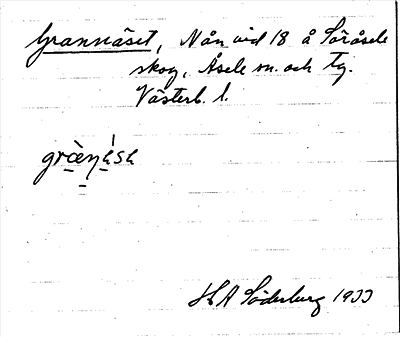 Grannäset, N ån vid 18 å Söråsele
skog, Åsele sn. och tg.
Västerb. l.
HLA Söderberg 1933